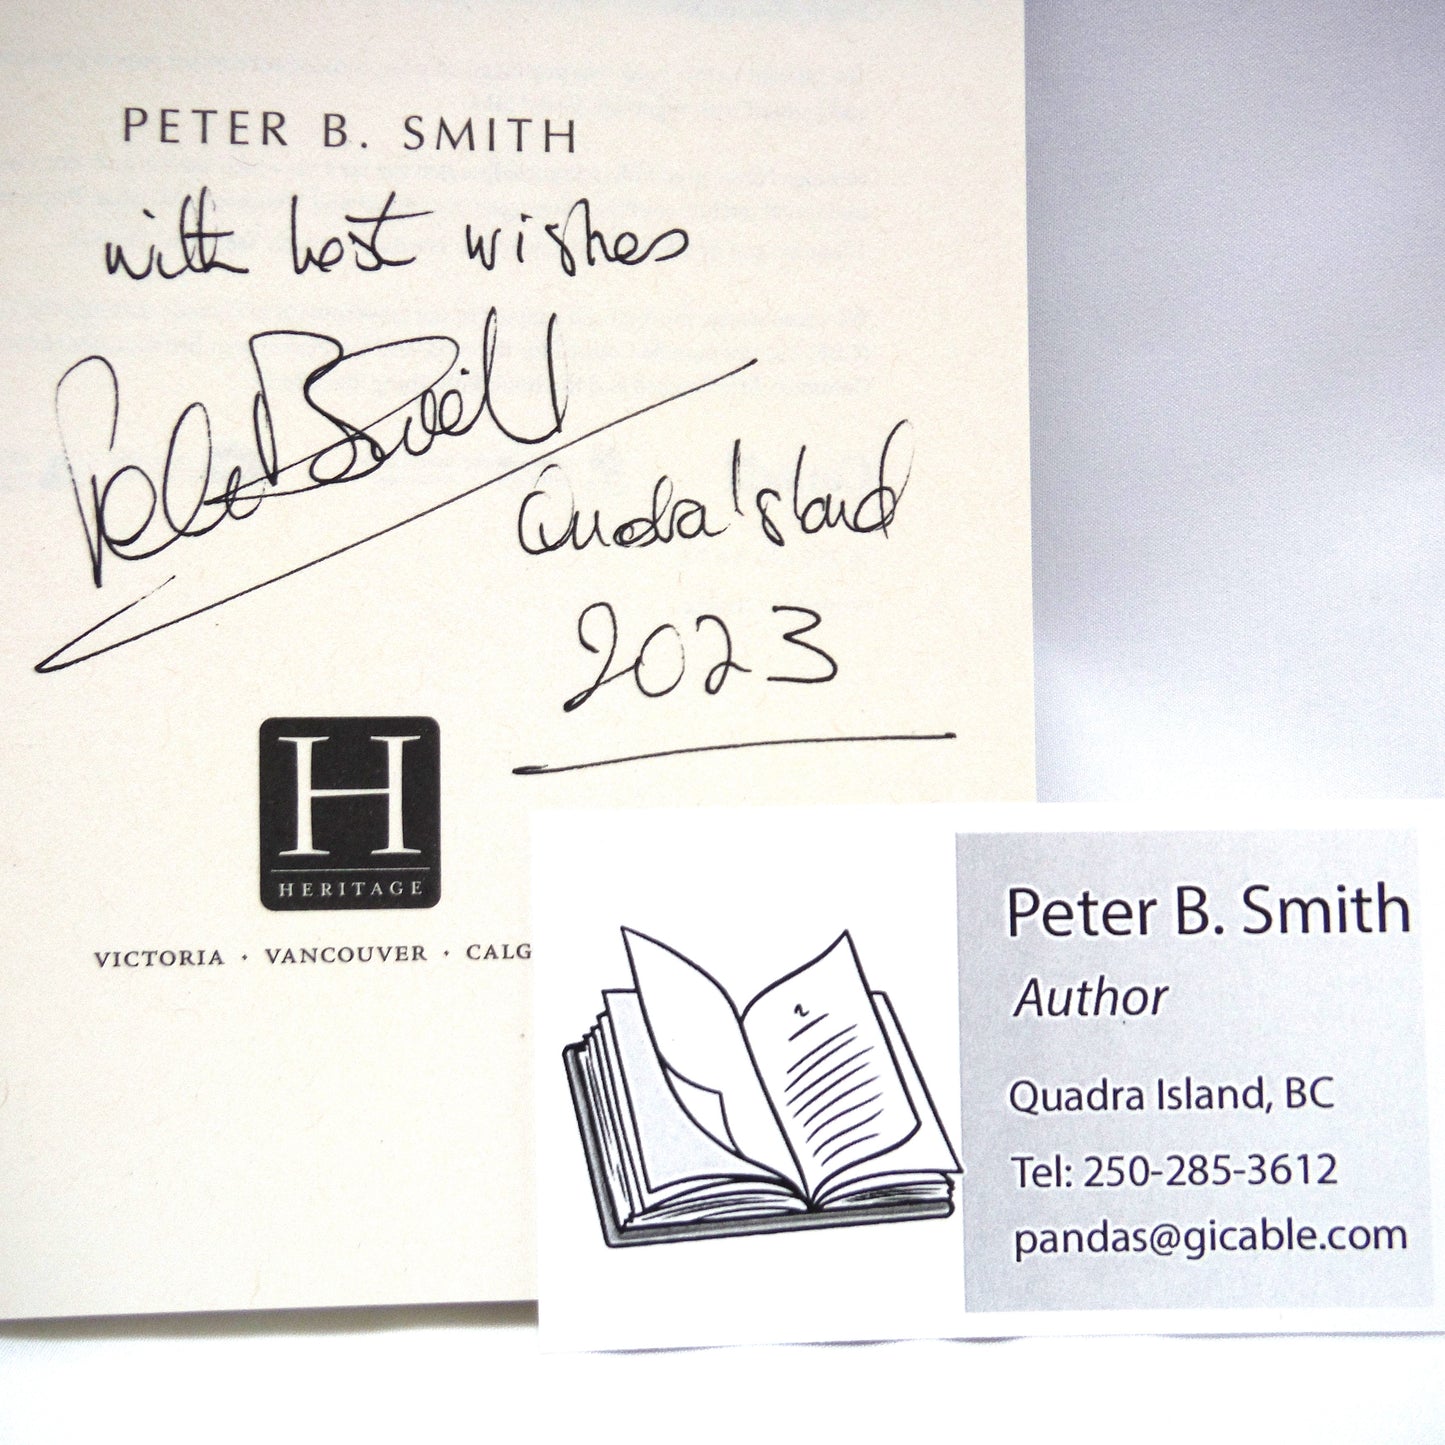 PETER B. SMITH
with best wishes
Peter B Smith
Quadra Island
2023
H
HERITAGE
VICTORIA · VANCOUVER · CALG
Peter B. Smith
Author
Quadra Island, BC
Tel: 250-285-3612
pandas@gicable.com